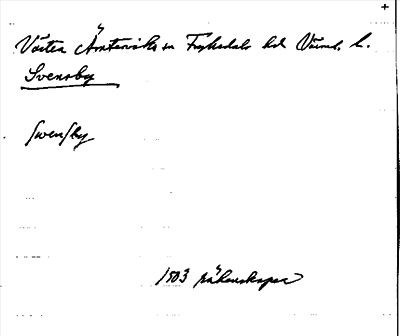 +
Västra Ämtervik sn Fryksdals hd Värml. l.
Svensby
Swensby
1503 räkenskaper